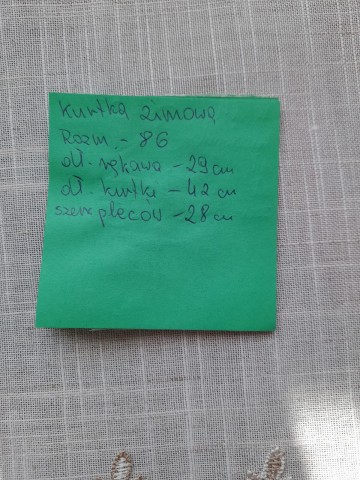 Kurtka zimowa
Rozm. - 86
dł. rękawa - 29 cm
dł. kurtki - 42 cm
szer. pleców - 28 cm